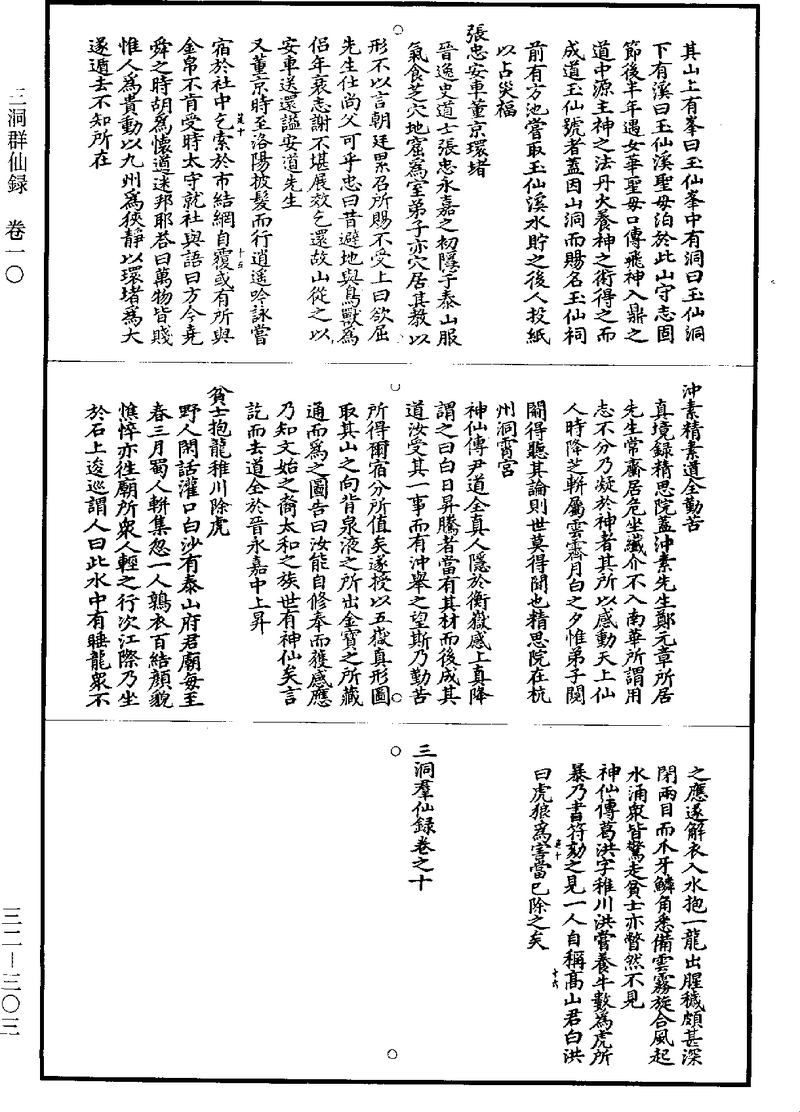 其山上有峯曰玉仙峯中有洞曰玉仙洞
下有溪曰玉仙溪聖母泊於此山守志固
節後半年遇女華聖母口傳飛神入鼎之
道中源主神之法丹火養神之術得之而
成道玉仙號者蓋因山洞而賜名玉仙祠
前有方池嘗取玉仙溪水貯之後人投紙
以占災福
張忠安車董京環堵
晉逸史道士張忠永嘉之初隱于泰山服
氣食芝穴地窟爲室弟子亦穴居其教以
形不以言朝廷累召所賜不受上曰欲屈
先生仕尚父可乎忠曰昔避地與鳥獸爲
侶年衰志謝不堪展效乞還故山從之以
安車送還謚安道先生
又董京時至洛陽披髮而行逍遙吟詠嘗
宿於社中乞索於市結網自覆或有所與
金帛不肯受時太守就社與語曰方今堯
舜之時胡爲懷道迷邦耶荅曰萬物皆賤
惟人爲貴動以九州爲狹靜以環堵爲大
遂遁去不知所在
沖素精素道全勤苦
真境録精思院蓋沖素先生鄭元章所居
先生常齋居危坐纖介不入南華所謂用
志不分乃凝於神者其所以感動天上仙
人時降芝軿屬雲霽月白之夕惟弟子閱
關得聽其論則世莫得聞也精思院在杭
州洞霄宮
神仙傳尹道全真人隱於衡嶽感上真降
謂之曰白日昇騰者當有其材而後成其
道汝受其一事而有沖舉之望斯乃勤苦
所得爾宿分所值矣遂授以五嶽真形圖
取其山之向背泉液之所出金寶之所藏
通而爲之圖告曰汝能自修奉而獲感應
乃知文始之裔太和之族世有神仙矣言
訖而去道全於晉永嘉中上昇
貧士抱龍稚川除虎
野人閑話灌口白沙有泰山府君廟每至
春三月蜀人軿集忽一人鶉衣百結顏貌
憔悴亦往廟所衆人輕之行次江際乃坐
於石上逡巡謂人曰此水中有睡龍衆不
之應遂解衣入水抱一龍出腥穢頗甚深
閉兩目而爪牙鱗角悉備雲霧旋合風起
水涌衆皆驚走貧士亦瞥然不見
神仙傳葛洪字稚川洪嘗養牛數爲虎所
暴乃書符劾之見一人自稱髙山君白洪
曰虎狼爲害當已除之矣
三洞羣仙録卷之十
三洞群仙録 卷一〇
三二—三〇三